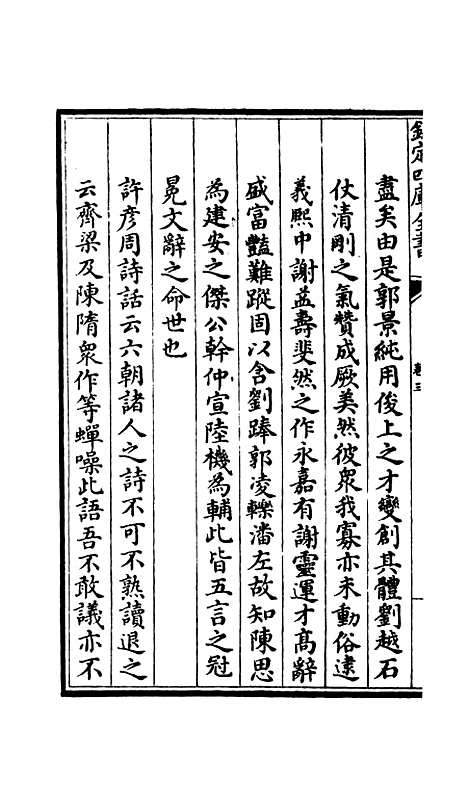 欽定四庫全書
卷三
盡矣由是郭景純用俊上之才變創其體劉越石
仗清剛之氣贊成厥美然彼衆我寡亦未動俗逮
義熙中謝益壽斐然之作永嘉有謝靈運才髙辭
盛富豔難蹤固以含劉踳郭凌轢潘左故知陳思
為建安之傑公幹仲宣陸機為輔此皆五言之冠
冕文辭之命世也
許彦周詩話云六朝諸人之詩不可不熟讀退之
云齊梁及陳隋衆作等蟬噪此語吾不敢議亦不